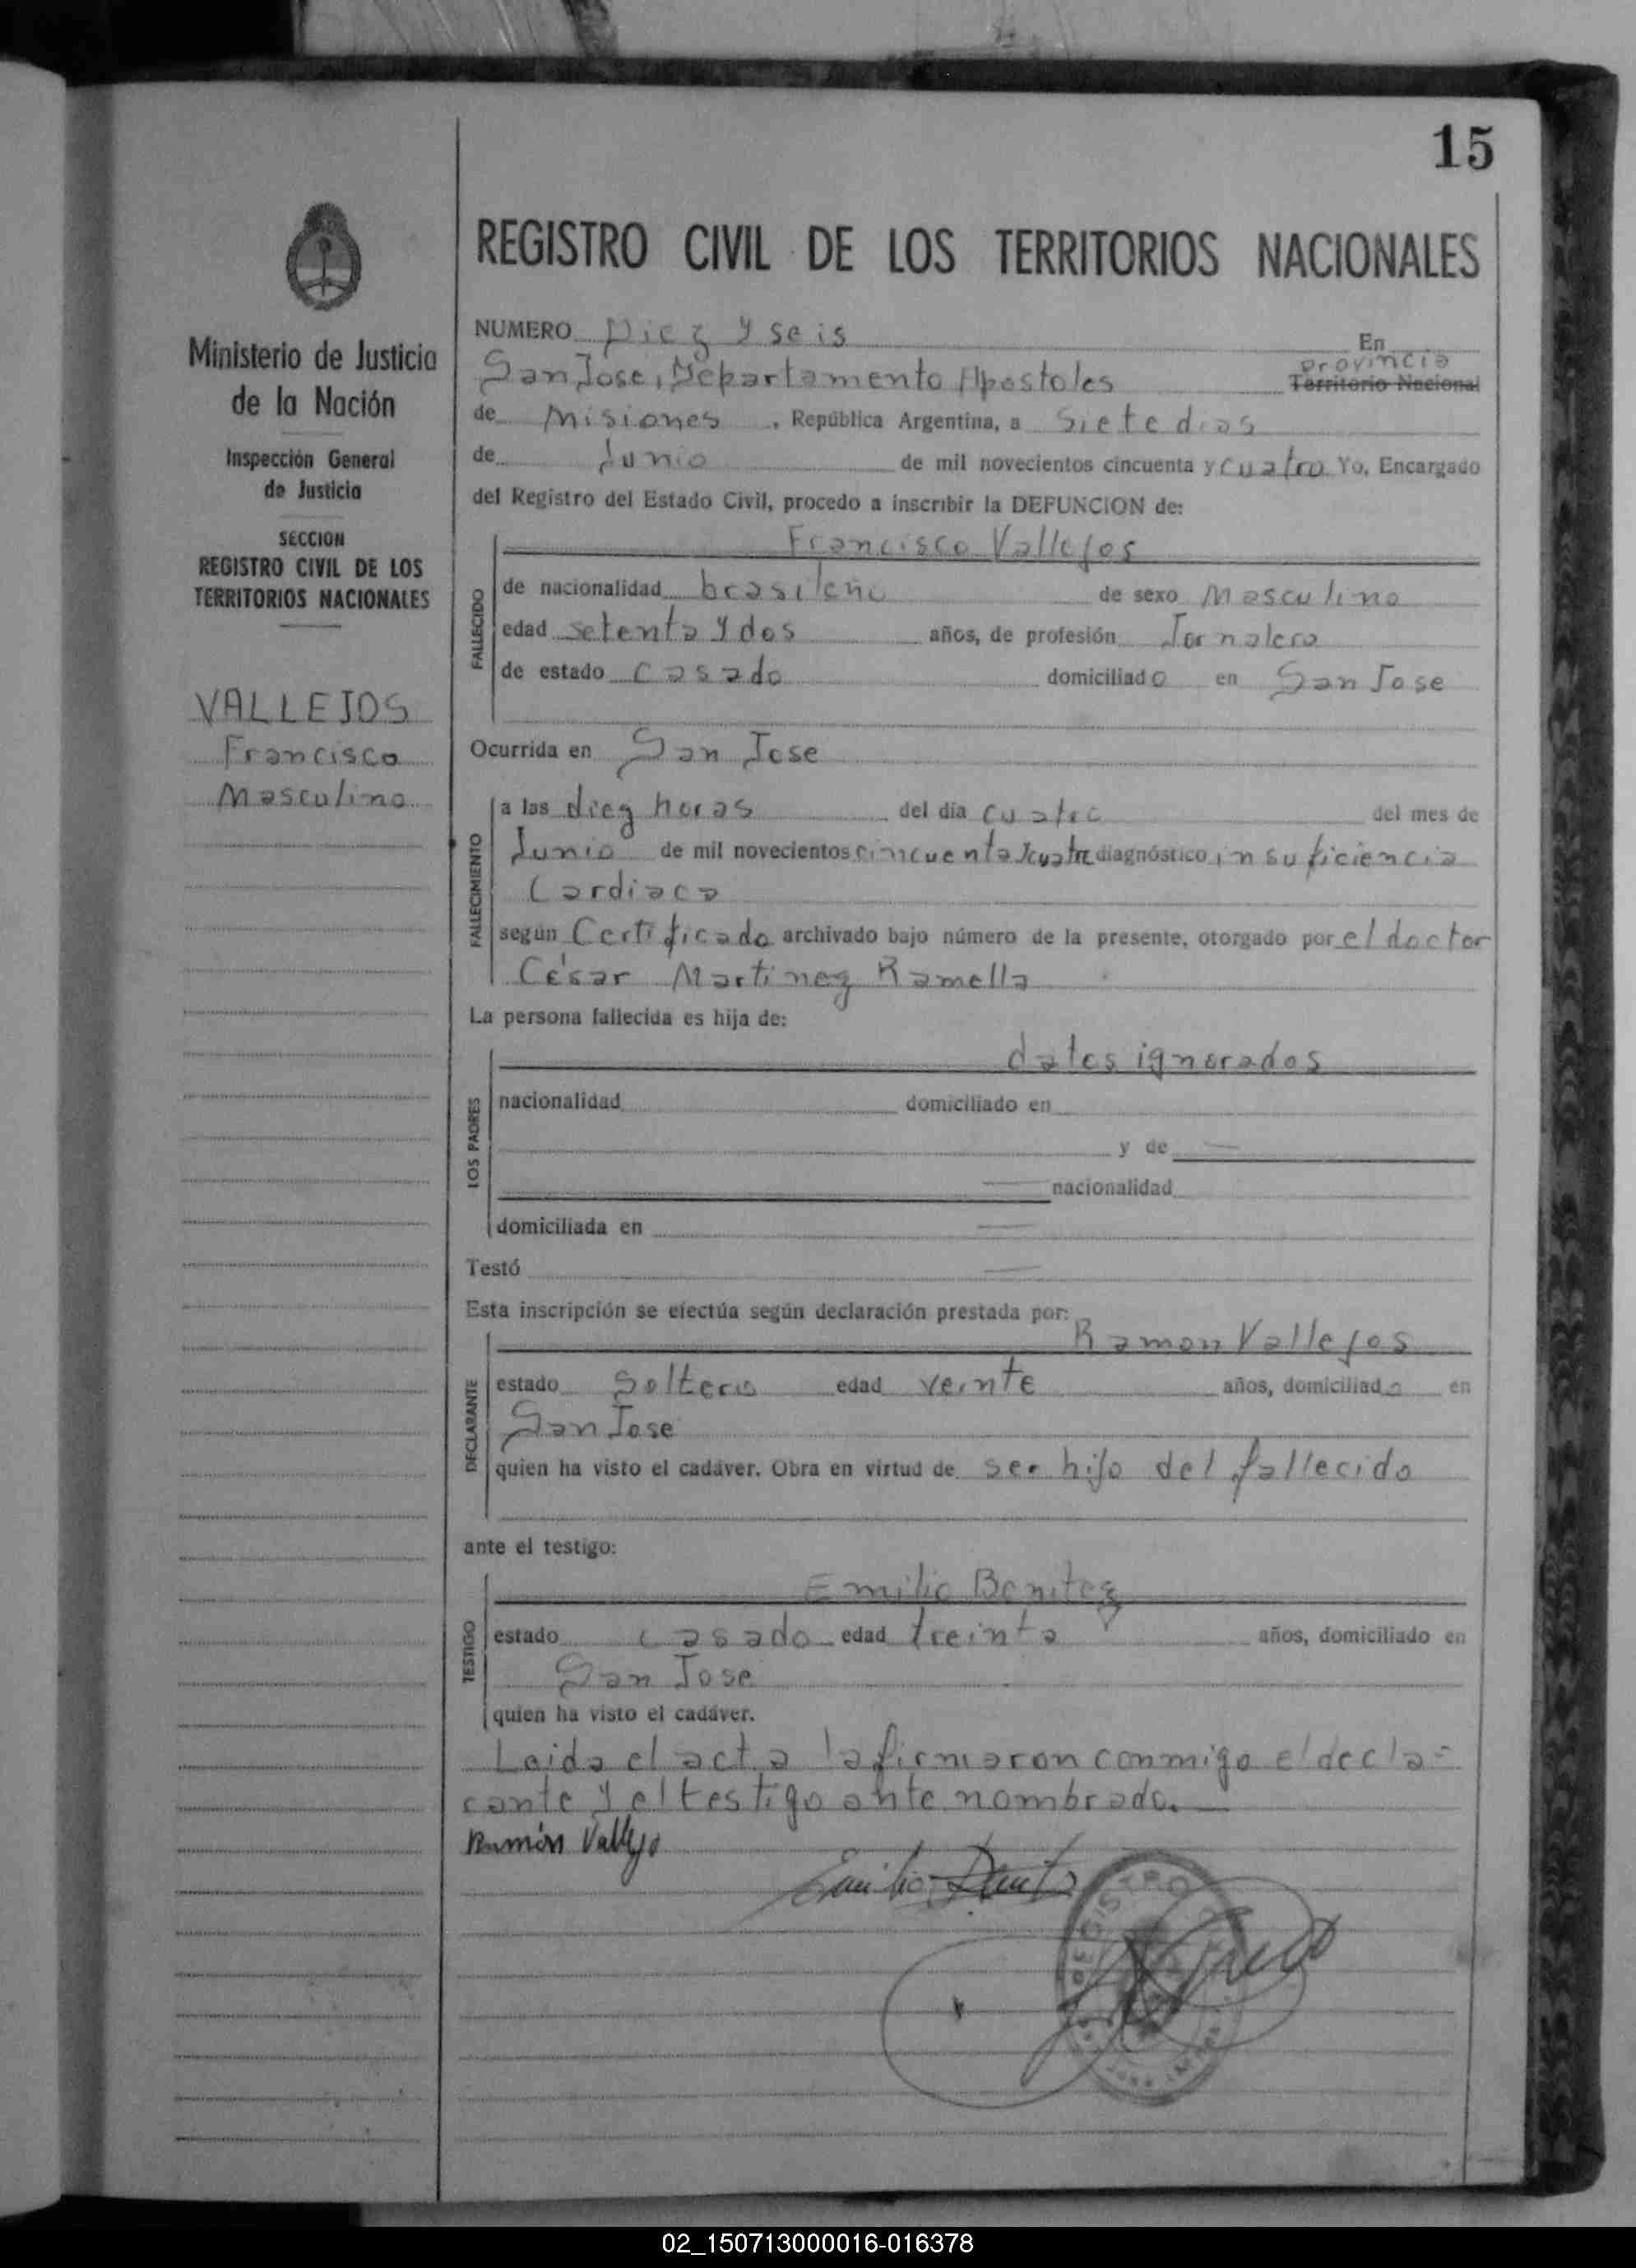 15
REGISTRO CIVIL DE LOS TERRITORIOS NACIONALES
Ministerio de Justicia
de la Nación
Inspección General
de Justicia
SECCION
REGISTRO CIVIL DE LOS
TERRITORIOS NACIONALES
VALLEJOS
Francisco
Masculino
NUMERO Diez y seis En
San Jose, Departamento Apostoles provincia Territorio Nacional
de Misiones, República Argentina, a siete dias
de Junio de mil novecientos cincuenta y cuatro Yo, Encargado
del Registro del Estado Civil, procedo a inscribir la DEFUNCION de:
FALLECIDO
Francisco Vallejos
de nacionalidad brasileño de sexo Masculino
edad setenta y dos años, de profesión Jornalero
de estado casado domiciliado en San Jose
Ocurrida en San Jose
FALLECIMIENTO
a las diez horas del día cuatro del mes de
Junio de mil novecientos cincuenta y cuatro diagnóstico insuficiencia
Cardiaca
según Certificado archivado bajo número de la presente, otorgado por el doctor
César Martinez Ramella
La persona fallecida es hija de:
LOS PADRES
datos ignorados
nacionalidad domiciliado en
y de —
— nacionalidad
domiciliada en —
Testó —
Esta inscripción se efectúa según declaración prestada por:
DECLARANTE
Ramon Vallejos
estado Soltero edad veinte años, domiciliado en
San Jose
quien ha visto el cadáver. Obra en virtud de ser hijo del fallecido
ante el testigo:
TESTIGO
Emilio Benitez
estado casado edad treinta años, domiciliado en
San Jose
quien ha visto el cadáver.
Leida el acta la firmaron conmigo el decla-
rante y el testigo ante nombrado.—
Ramón Vallejo
Emilio
REGISTRO
02_150713000016-016378